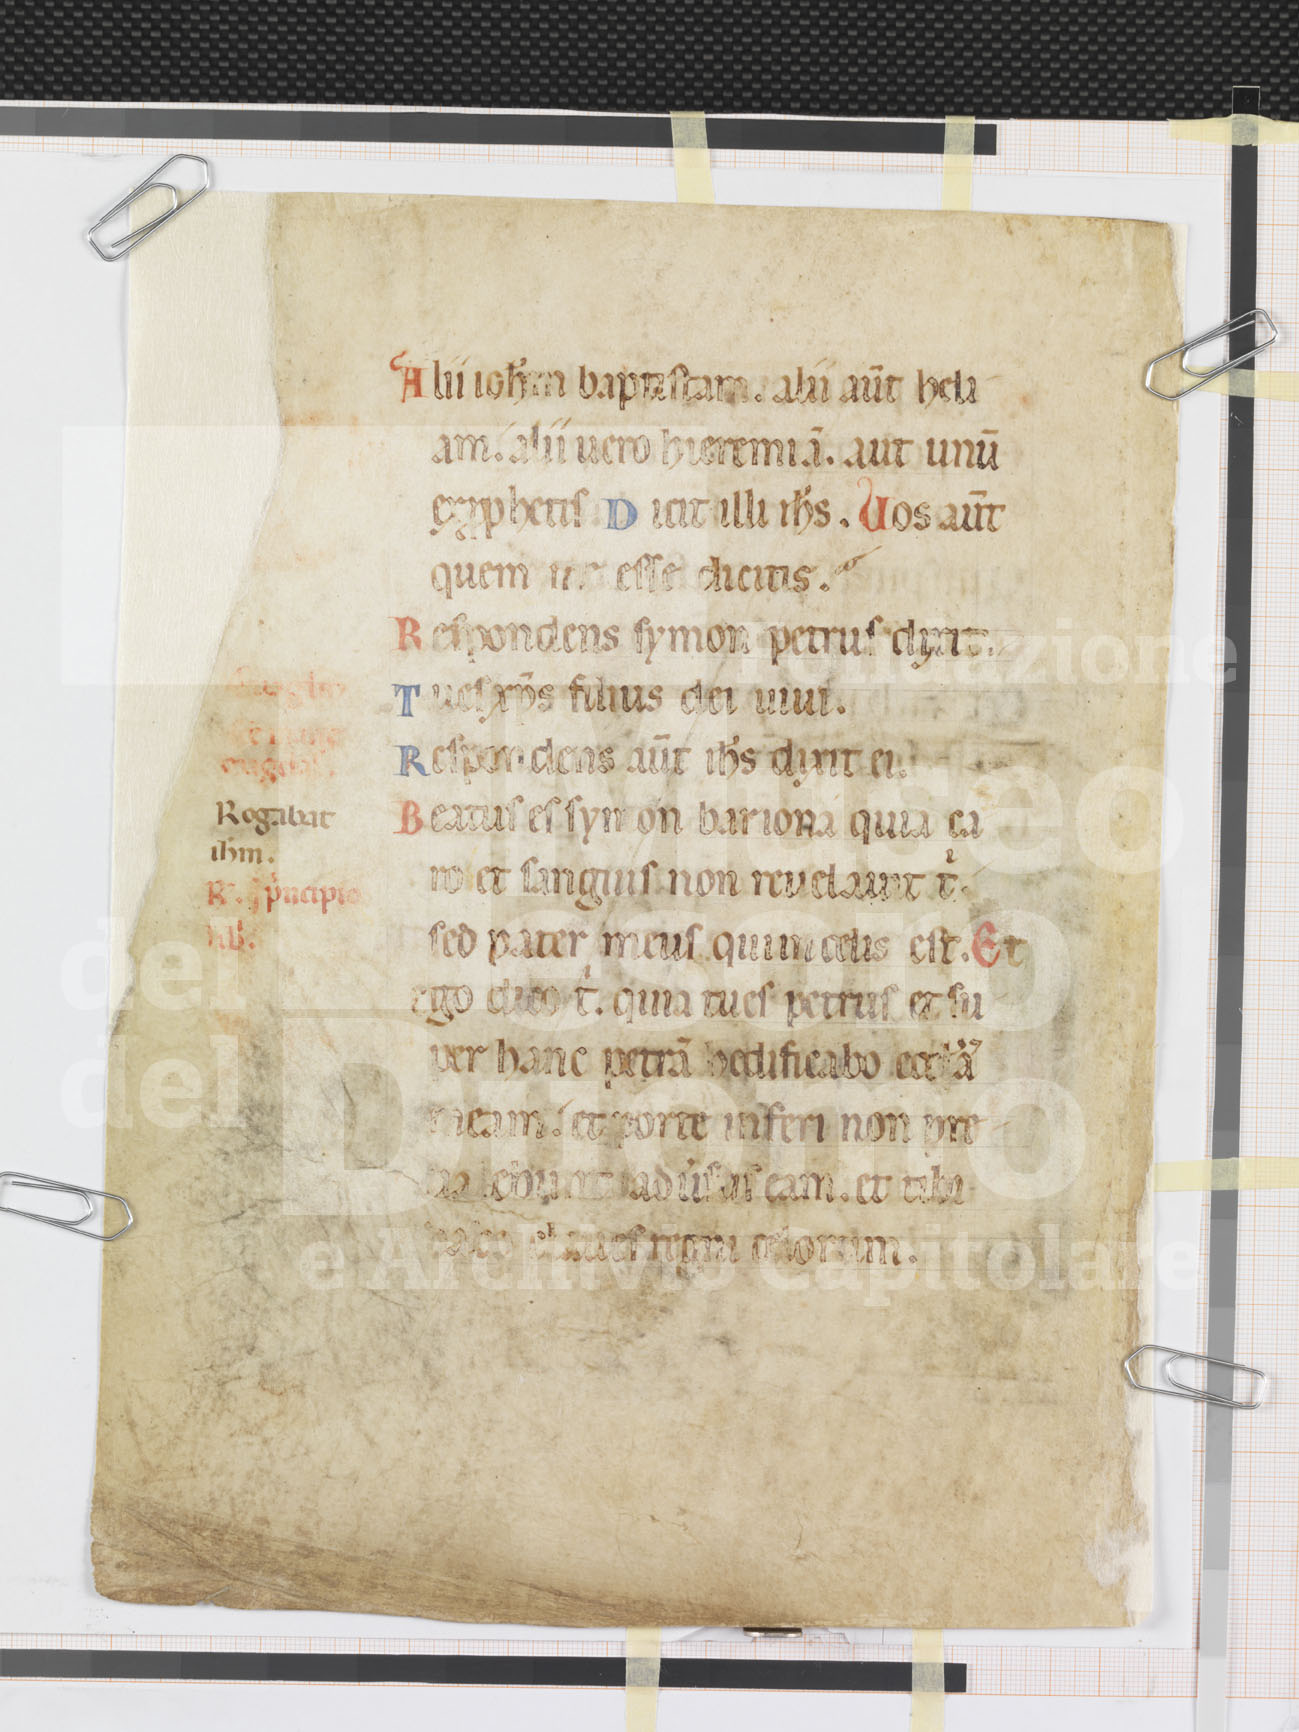 Alii ioh̄m baptistam. alii aūt heli
am. alii uero hieremiā. aut unū
ex p̱phetis Dicit illi ih̄s. Uos aūt
quem me esse dicitis.
Respondens symon petrus dixit.
Tu es xp̄s filius dei uiui.
Respondens aūt ih̄s dixit ei.
Beatus es symon bariona quia ca
ro et sanguis non reuelauit tⁱ.
sed pater meus qui in celis est. Et
ego dico tⁱ. quia tu es petrus et su
per hanc petrā hedificabo eccl̄ā
meam. et porte inferi non pre
ualebunt aduersus eam. et tibi
dabo claues regni celorum.
Rogabat
ih̄m.
principio
Fondazione
Museo
del Tesoro
del Duomo
e Archivio Capitolare